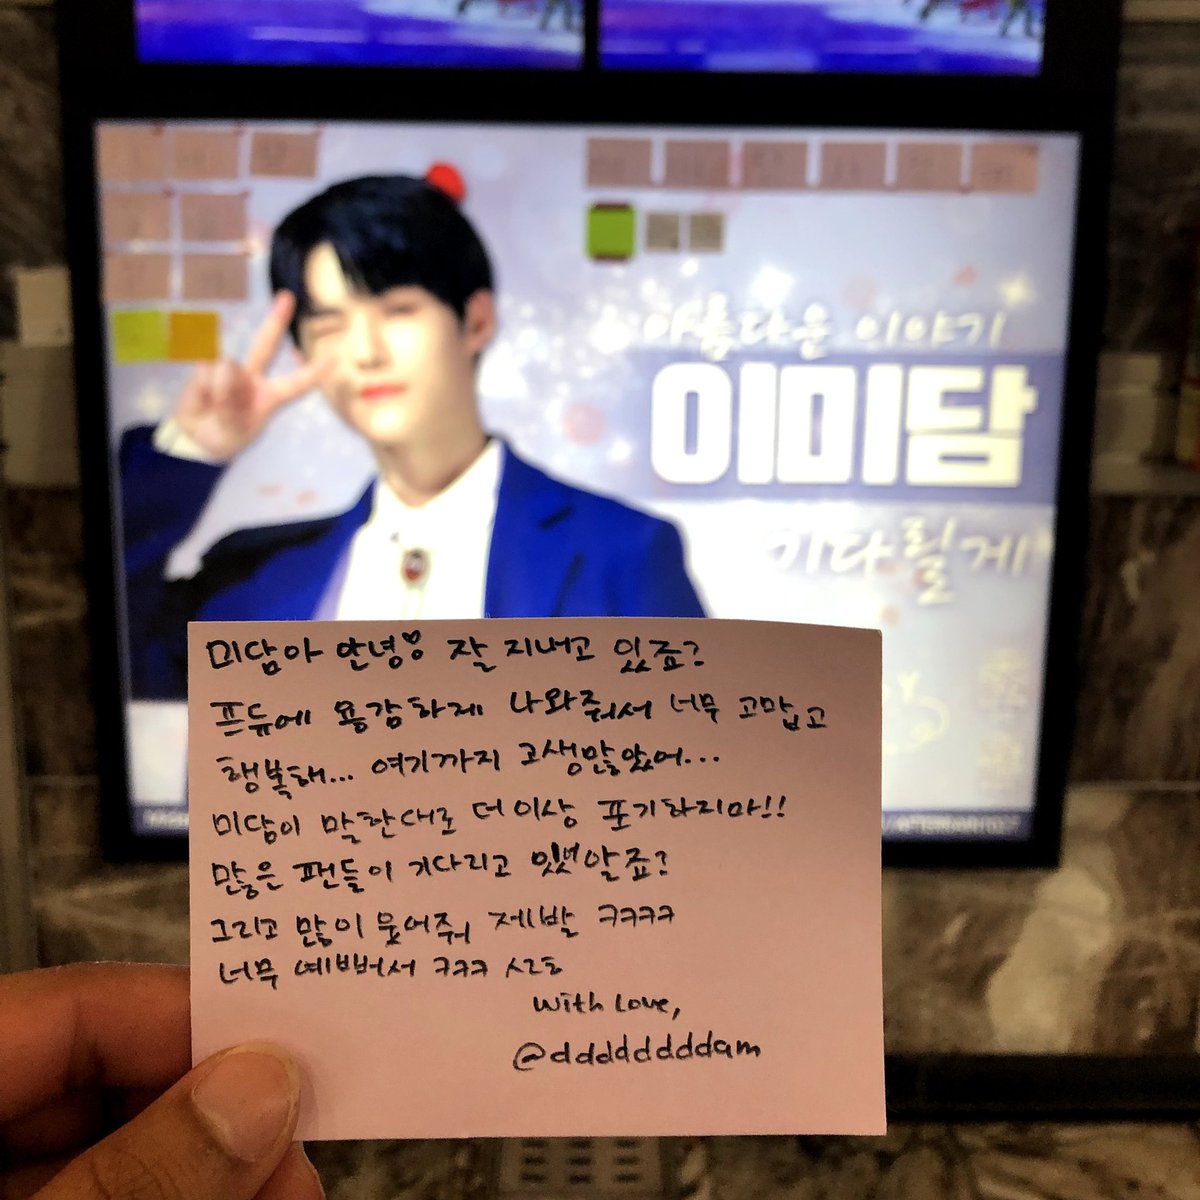 아름다운 이야기
이미담
기다릴게
미담아 안녕♡ 잘 지내고 있죠?
프듀에 용감하게 나와줘서 너무 고맙고
행복해... 여기까지 고생많았어...
미담이 말한대로 더 이상 포기하지마!!
많은 팬들이 기다리고 알죠?
그리고 많이 웃어줘 제발 ㅋㅋㅋㅋ
너무 예뻐서 ㅋㅋㅋ
With Love,
@dddddddddam